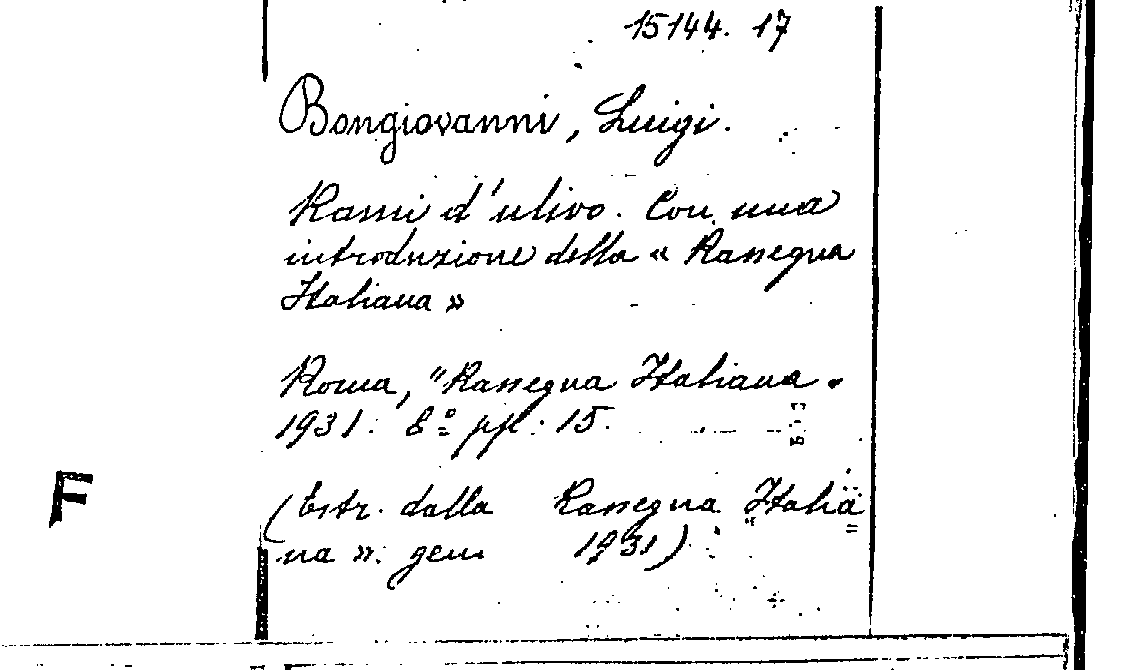 15144. 17
Bongiovanni, Luigi.
Rami d'ulivo. Con una
introduzione della « Rassegna
Italiana »
Roma, "Rassegna Italiana.
1931. 8º pp. 15.
F
(Estr. dalla Rassegna Italia
na ». gen 1931)